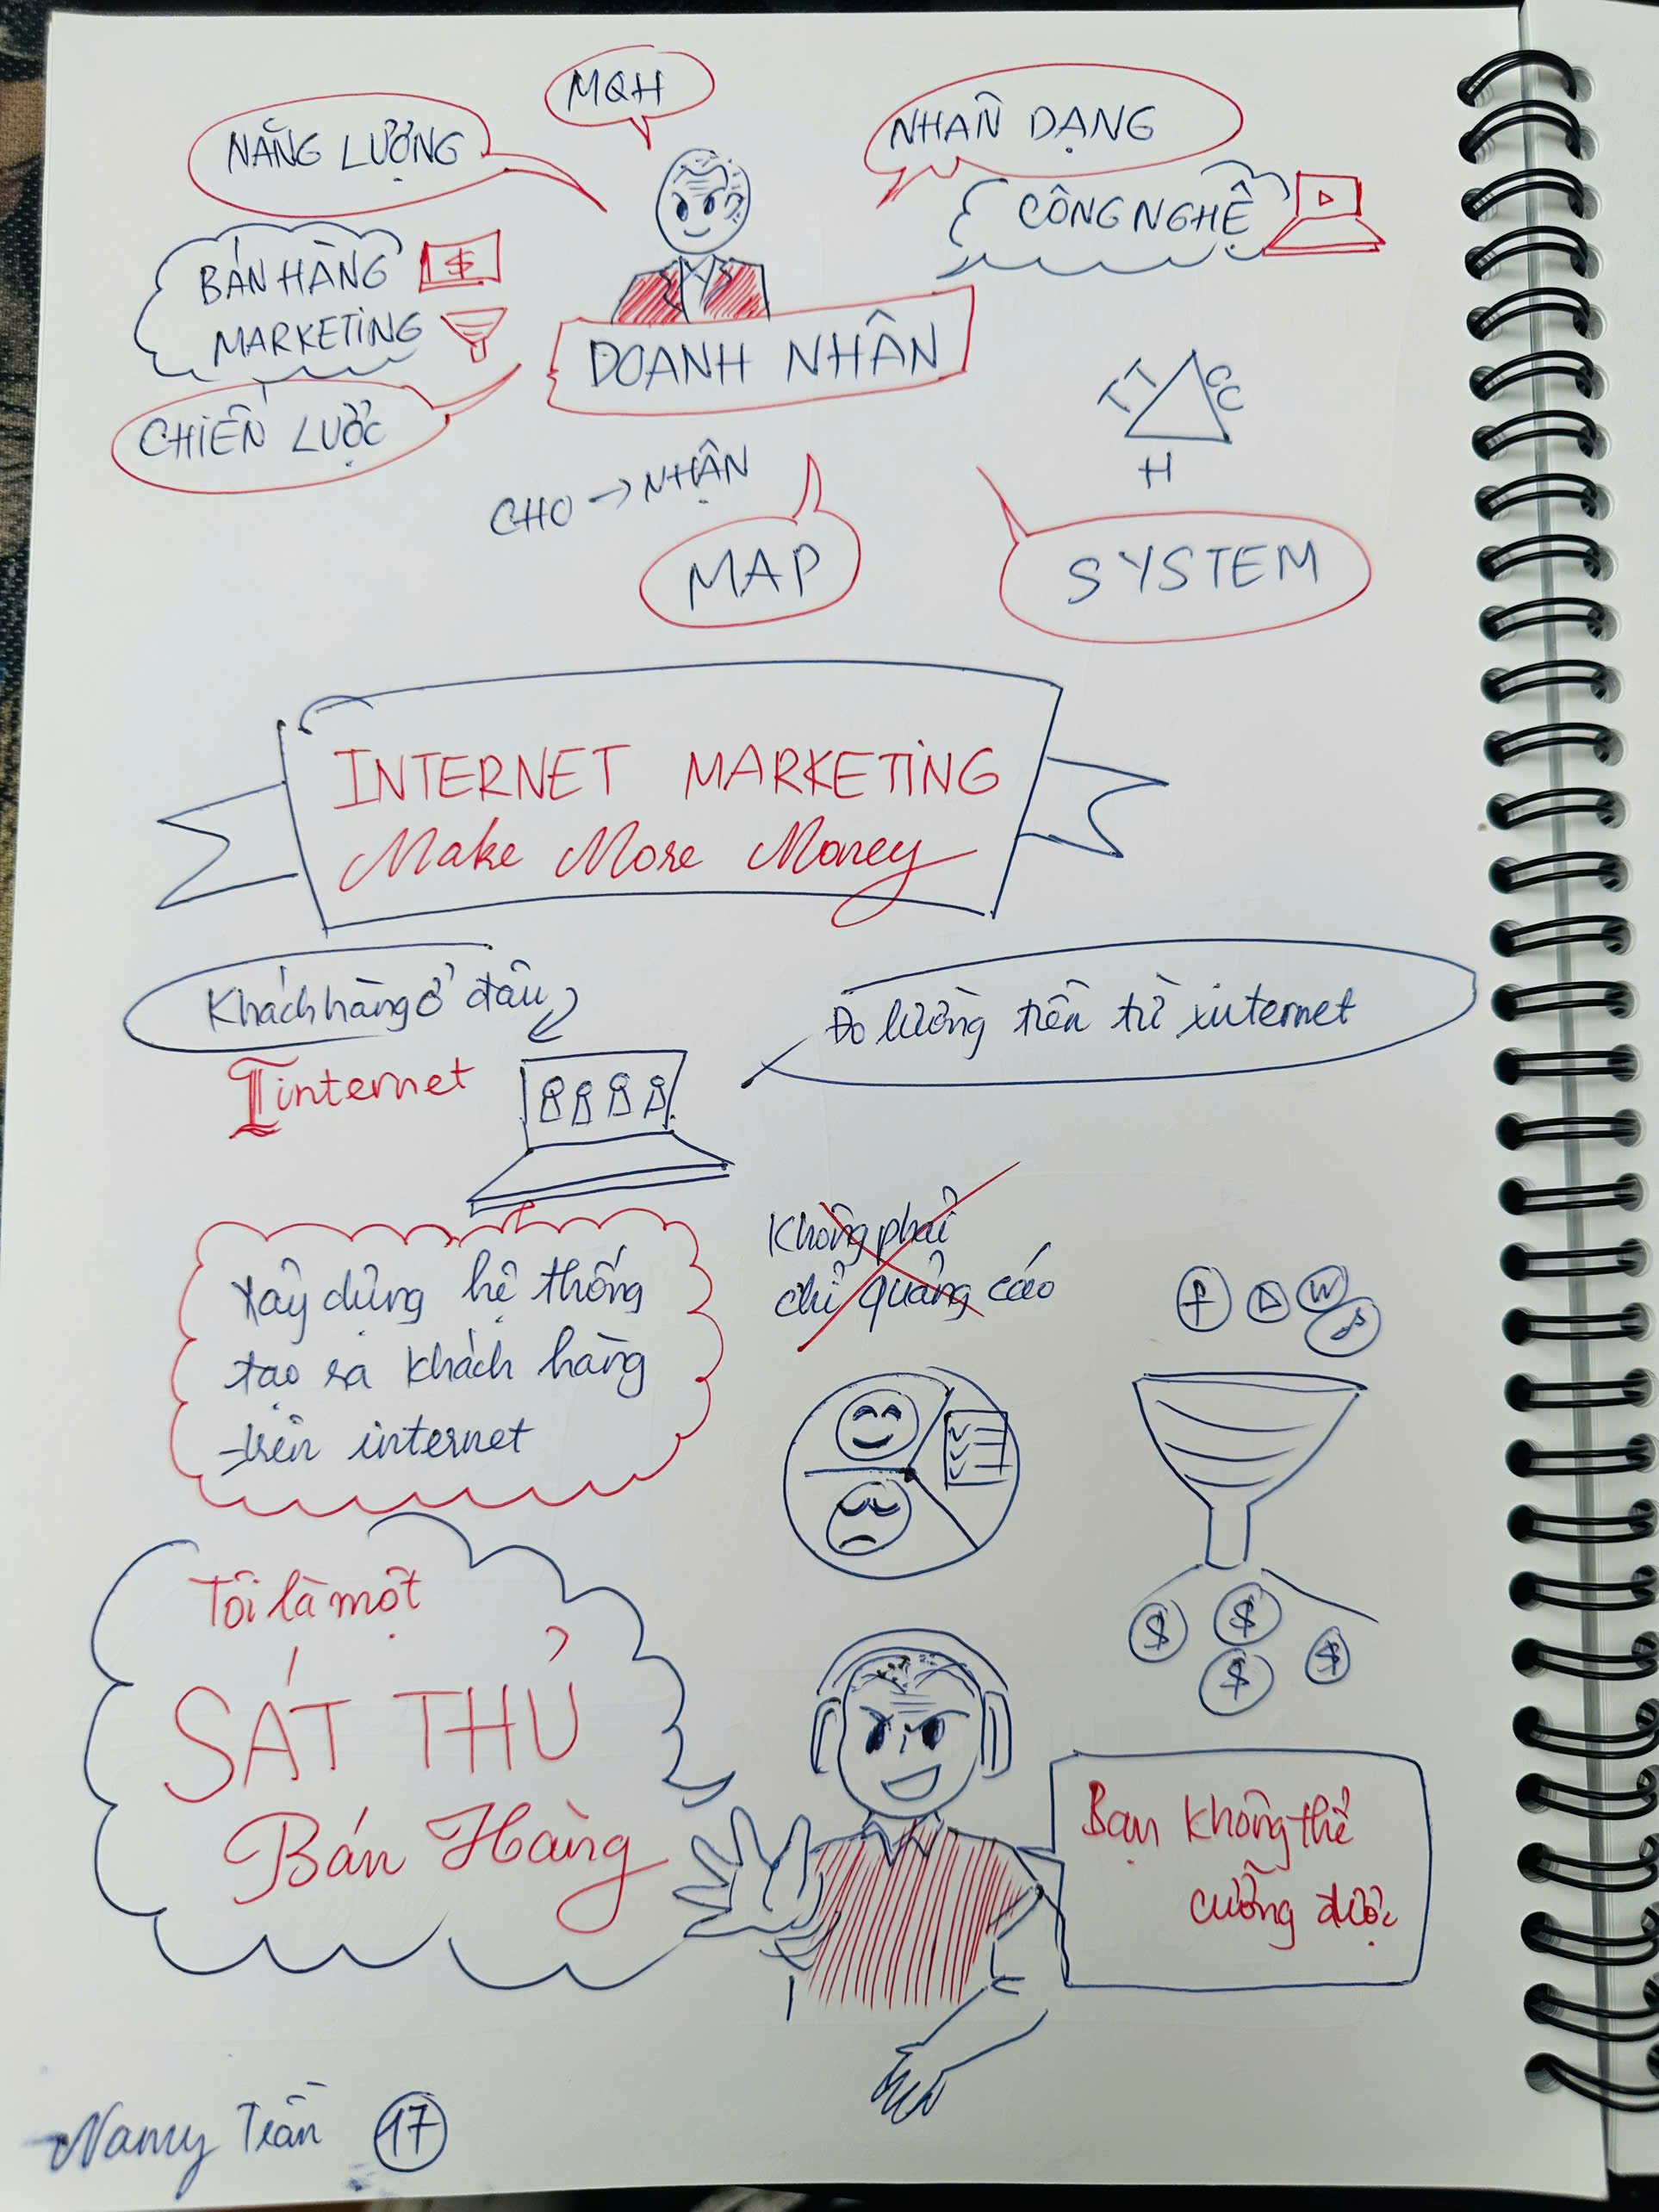 MQH
NĂNG LƯỢNG
NHẬN DẠNG
CÔNG NGHỆ
BÁN HÀNG
$
MARKETING
DOANH NHÂN
CHIẾN LƯỢC
TT
CC
H
CHO → NHẬN
MAP
SYSTEM
INTERNET MARKETING
Make More Money
Khách hàng ở đâu
Đo lường tiền từ internet
internet
Không phải
chỉ quảng cáo
Xây dựng hệ thống
tạo ra khách hàng
trên internet
f
W
Tôi là một
SÁT THỦ
Bán Hàng
$ $ $ $
Bạn không thể
cưỡng được
Namy Trần 17